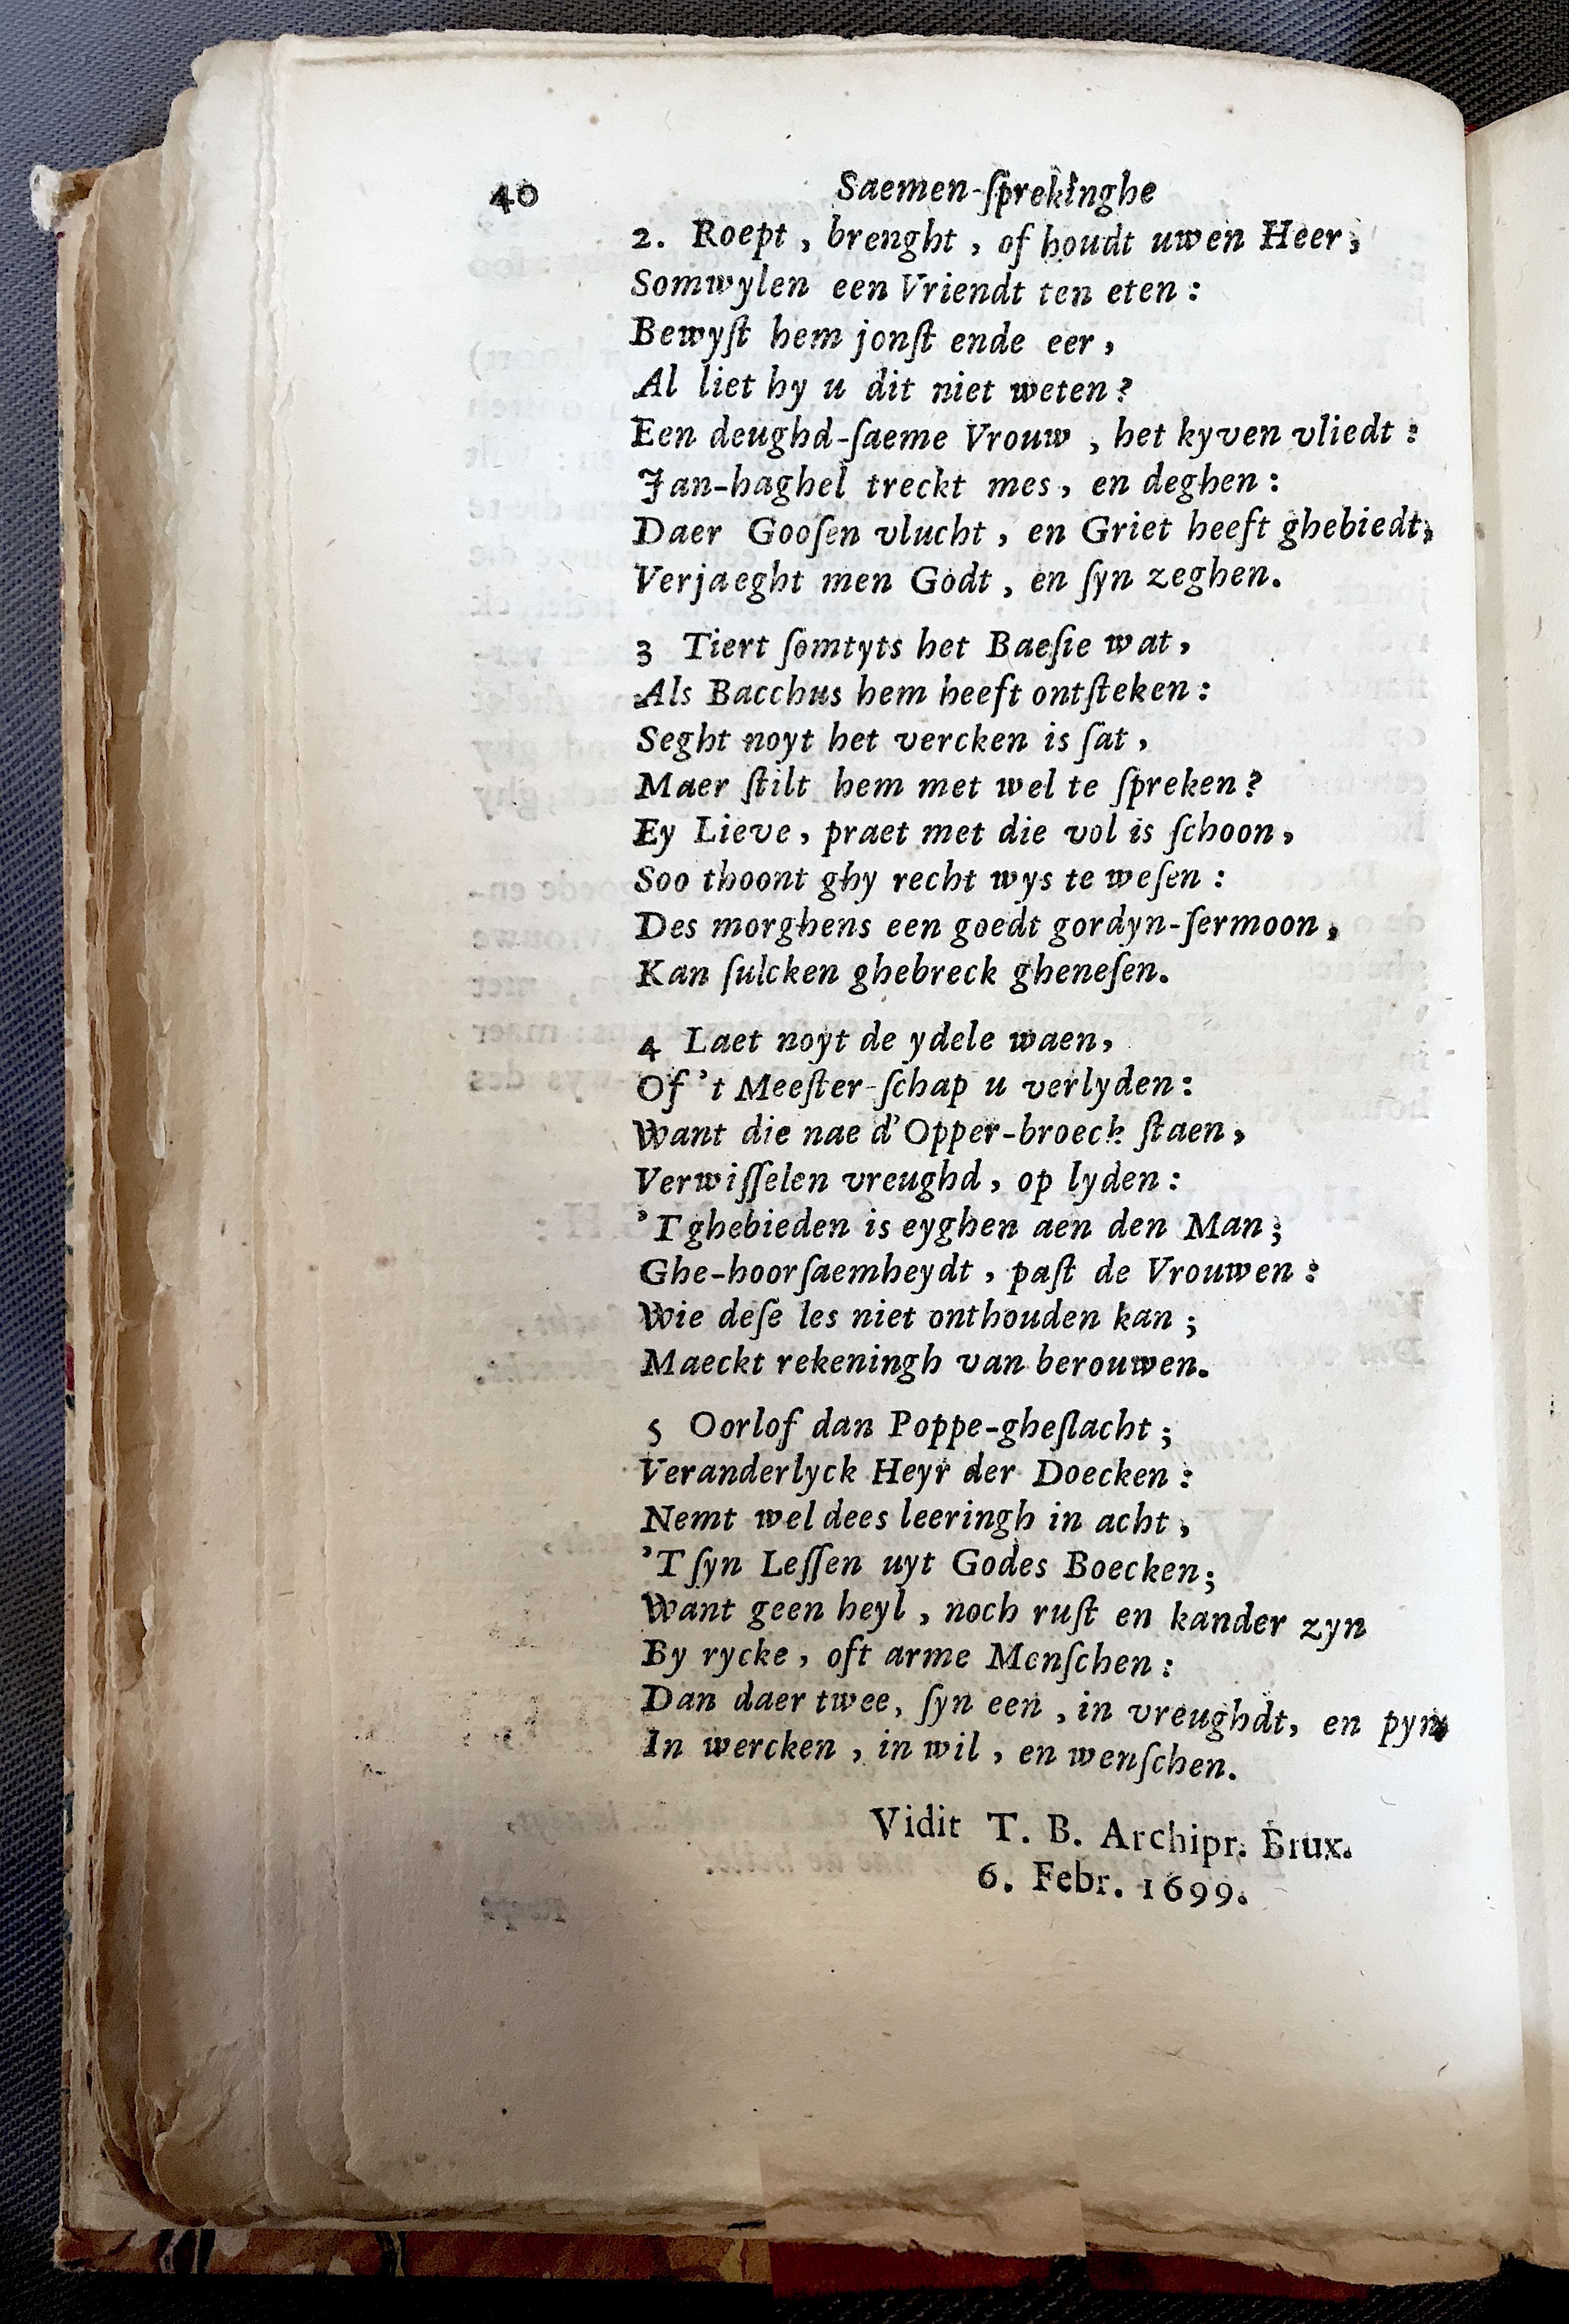 40 Saemen-ſprekinghe
2. Roept , brenght , of houdt uwen Heer ,
Somwylen een Vriendt ten eten :
Bewyſt hem jonſt ende eer ,
Al liet hy u dit niet weten ?
Een deughd-ſaeme Vrouw , het kyven vliedt :
Jan-haghel treckt mes , en deghen :
Daer Gooſen vlucht , en Griet heeft ghebiedt ,
Verjaeght men Godt , en ſyn zeghen.
3 Tiert ſomtyts het Baeſie wat ,
Als Bacchus hem heeft ontſteken :
Seght noyt het vercken is ſat ,
Maer ſtilt hem met wel te ſpreken ?
Ey Lieve , praet met die vol is ſchoon ,
Soo thoont ghy recht wys te weſen :
Des morghens een goedt gordyn-ſermoon ,
Kan ſulcken ghebreck gheneſen.
4 Laet noyt de ydele waen ,
Of 't Meeſter-ſchap u verlyden :
Want die nae d'Opper-broeck ſtaen ,
Verwiſſelen vreughd , op lyden :
'T ghebieden is eyghen aen den Man ;
Ghe-hoorſaemheydt , paſt de Vrouwen :
Wie deſe les niet onthouden kan ;
Maeckt rekeningh van berouwen.
5 Oorlof dan Poppe-gheſlacht ;
Veranderlyck Heyr der Doecken :
Nemt wel dees leeringh in acht ,
'T ſyn Leſſen uyt Godes Boecken ;
Want geen heyl , noch ruſt en kander zyn
By rycke , oft arme Menſchen :
Dan daer twee, ſyn een , in vreughdt, en pyn
In wercken , in wil , en wenſchen.
Vidit T. B. Archipr. Brux.
6. Febr. 1699.